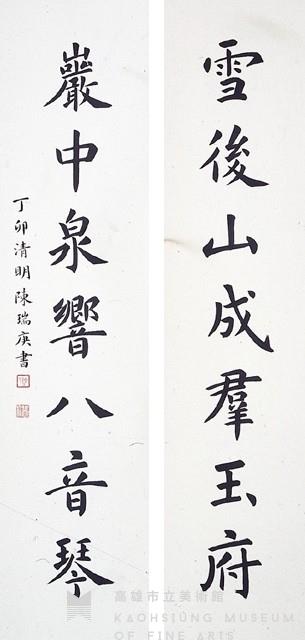 雪後山成羣玉府
巖中泉響八音琴
丁卯清明陳瑞庚書
高雄市立美術館
KAOHSIUNG MUSEUM
OF FINE ARTS